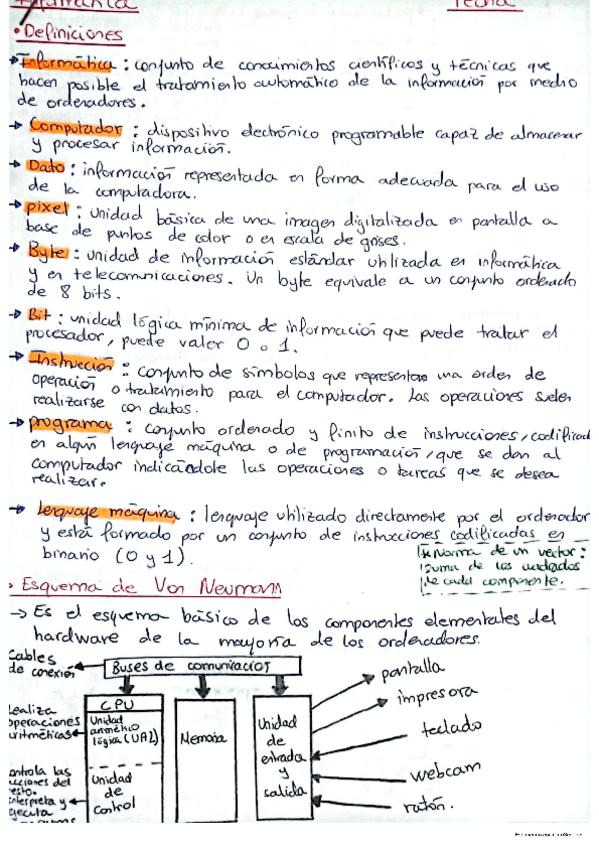 Informática
Fecha
• Definiciones
→ Informática : conjunto de conocimientos científicos y técnicas que
hacen posible el tratamiento automático de la información por medio
de ordenadores.
→ Computador : dispositivo electrónico programable capaz de almacenar
y procesar información.
→ Dato : información representada en forma adecuada para el uso
de la computadora.
→ pixel : unidad básica de una imagen digitalizada en pantalla a
base de puntos de color o en escala de grises.
→ Byte : unidad de información estándar utilizada en informática
y en telecomunicaciones. Un byte equivale a un conjunto ordenado
de 8 bits.
→ Bit : unidad lógica mínima de información que puede tratar el
procesador, puede valer 0 o 1.
→ Instrucción : conjunto de símbolos que representan una orden de
operación o tratamiento para el computador. Las operaciones suelen
realizarse con datos.
→ programa : conjunto ordenado y finito de instrucciones, codificad
en algún lenguaje máquina o de programación, que se dan al
computador indicándole las operaciones o tareas que se desea
realizar.
→ lenguaje máquina : lenguaje utilizado directamente por el ordenador
y está formado por un conjunto de instrucciones codificadas en
binario (0 y 1).
* Norma de un vector :
suma de los cuadrados
de cada componente.
• Esquema de Von Neumann
→ Es el esquema básico de los componentes elementales del
hardware de la mayoría de los ordenadores.
Cables
de conexión
Buses de comunicación
CPU
Unidad
aritmético
lógica (UAL)
Unidad
de
control
Memoria
Unidad
de
entrada
y
salida
pantalla
impresora
teclado
webcam
ratón.
Realiza
operaciones
aritméticas
controla las
resto.
interpreta y
ejecuta